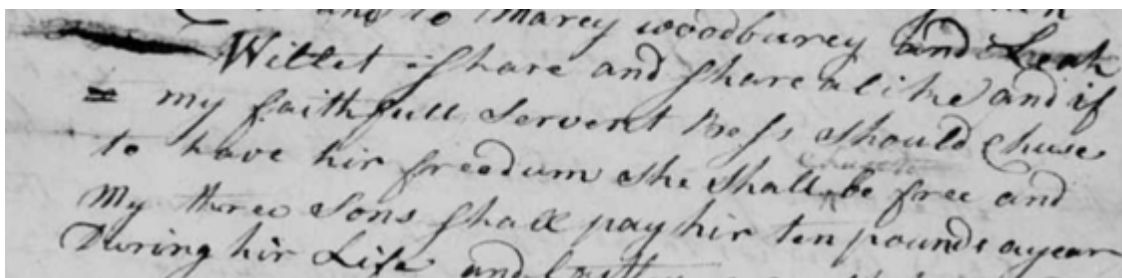 and to Marey woodburey and Leah
Willet share and share alike and if
my faithfull servent Bess should chuse
to have hir freedum she shall be free and
My three sons shall pay hir ten pounds a year
During hir Life and